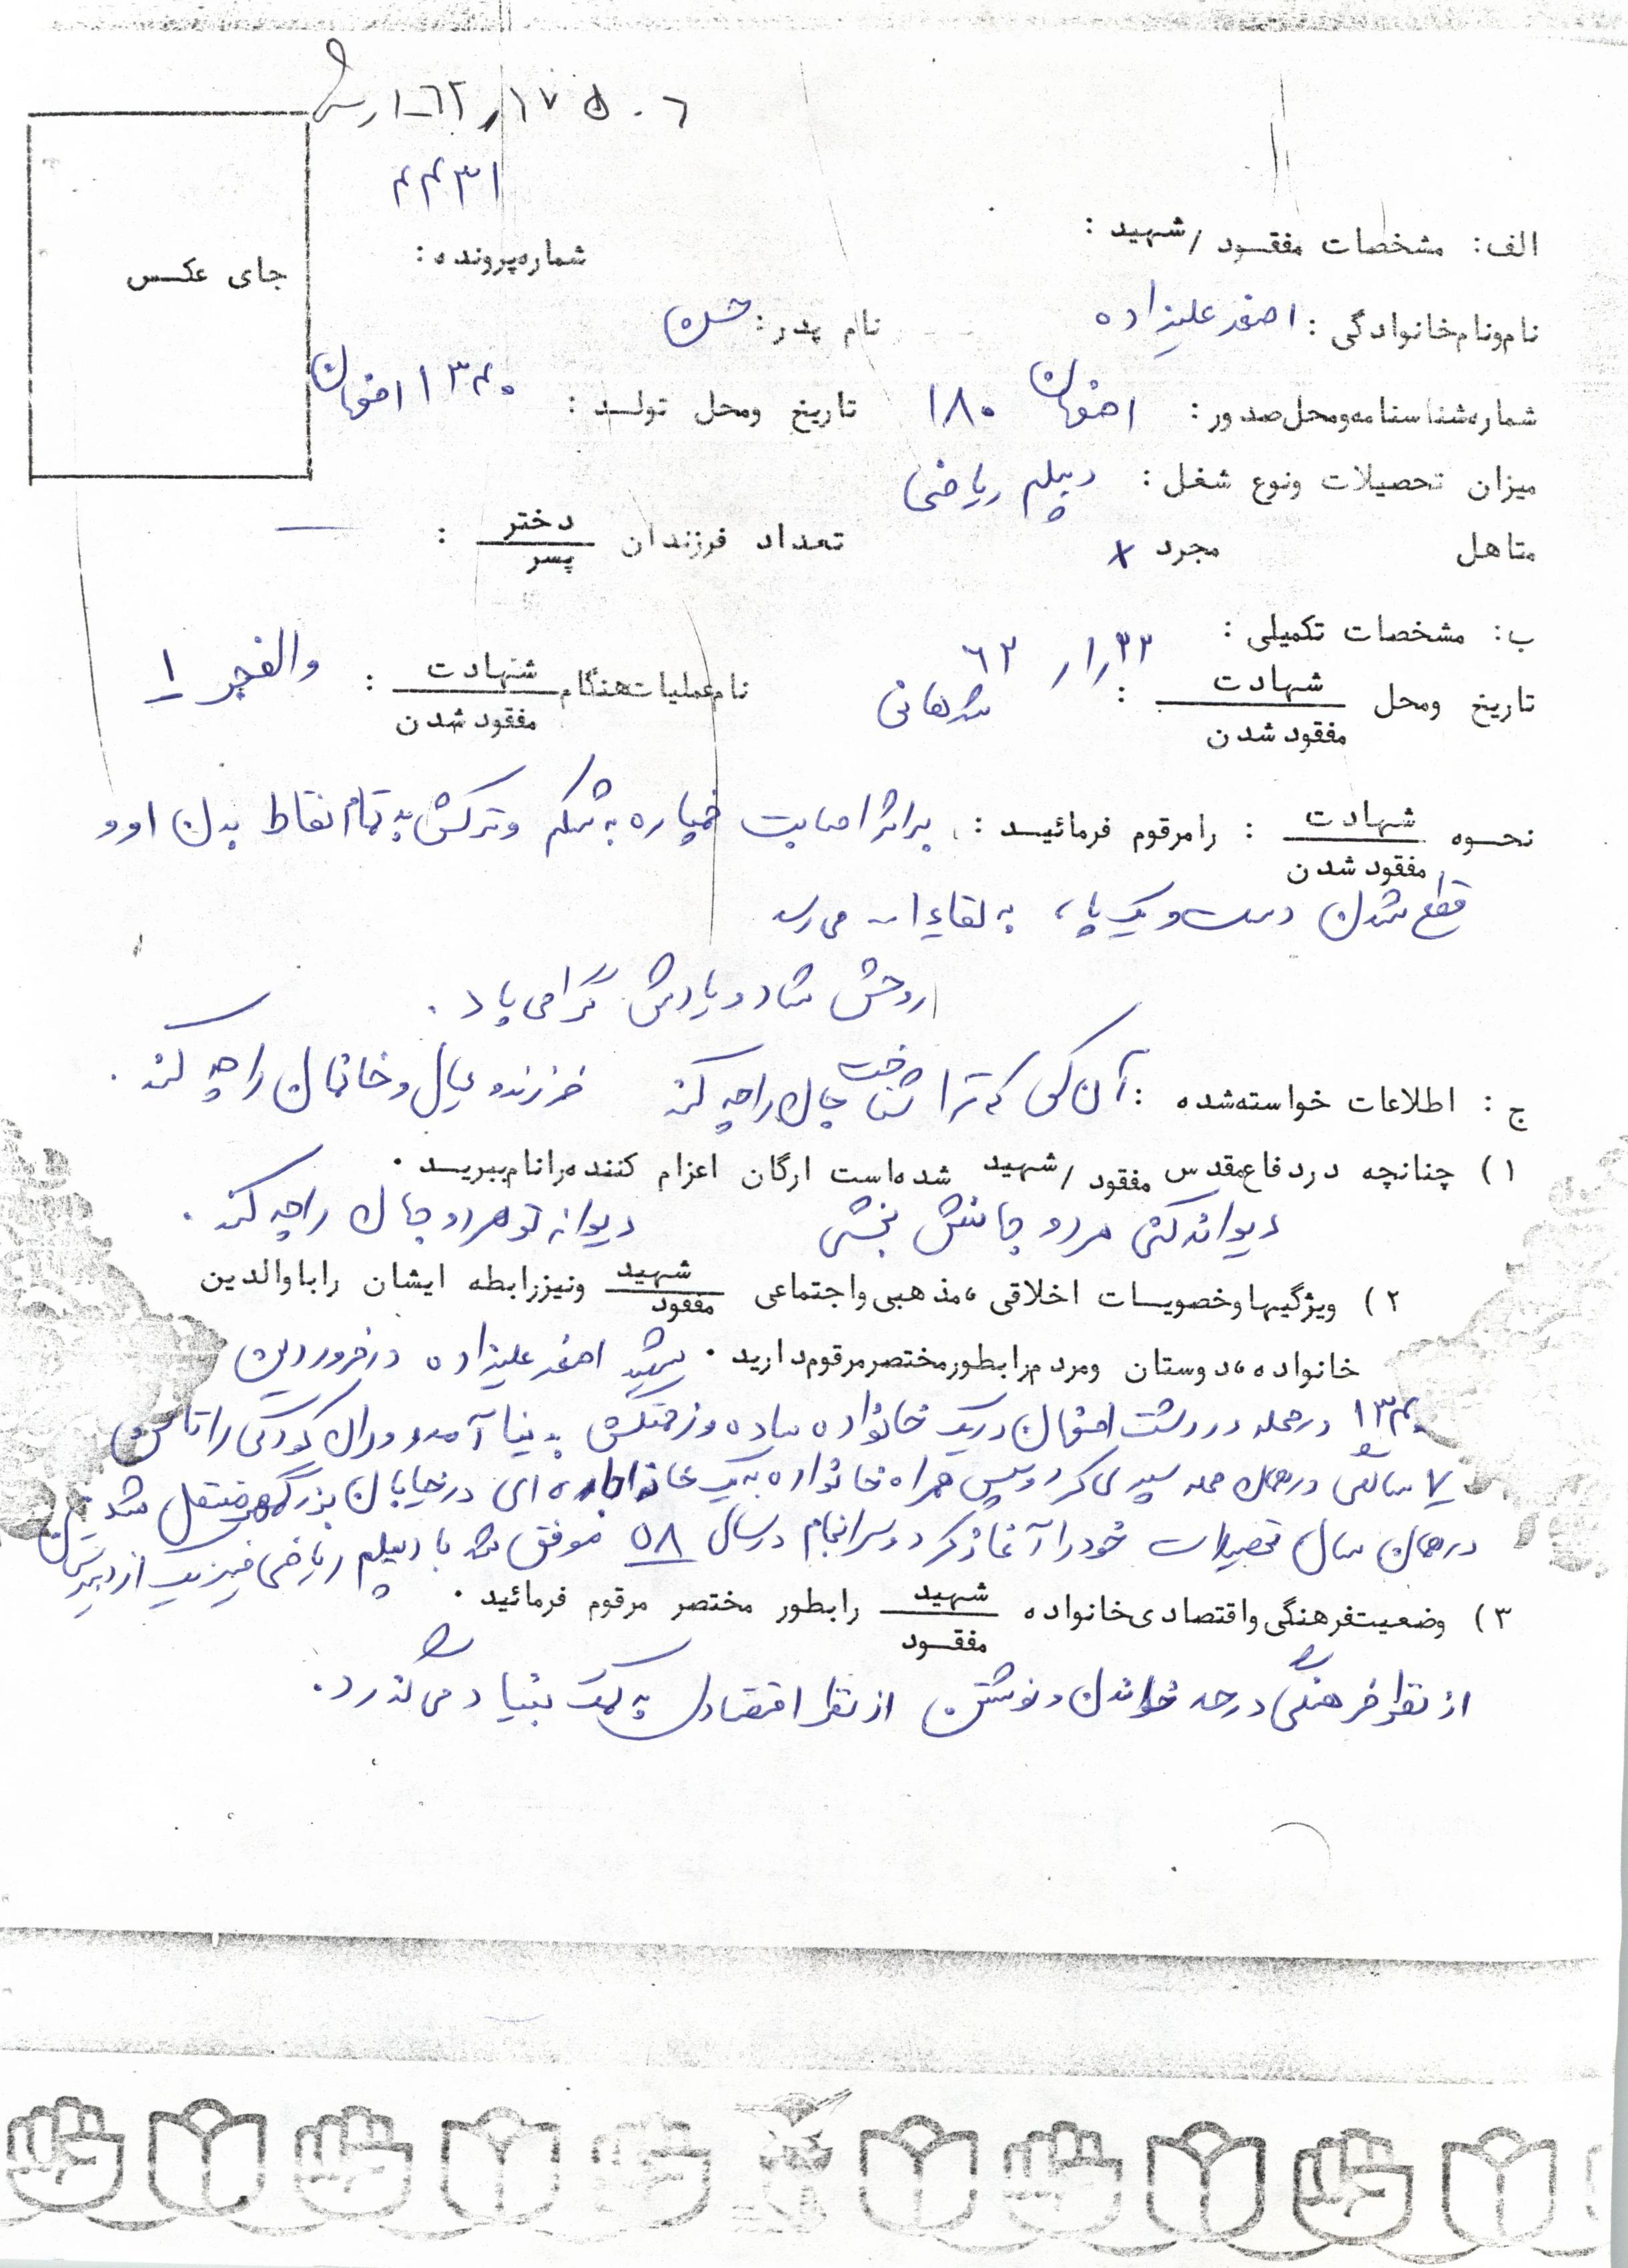 ۱۷۵۰۶
۴۴۳۱
الف: مشخصات مفقود / شهید :
شماره پرونده :
جای عکس
نام و نام خانوادگی : اصغر علیزاده
نام پدر : حسن
شماره شناسنامه و محل صدور : ۱۸۰ اصفهان
تاریخ و محل تولد : ۱۳۴۰ اصفهان
میزان تحصیلات و نوع شغل : دیپلم ریاضی
متاهل مجرد x تعداد فرزندان دختر / پسر : —
ب: مشخصات تکمیلی :
تاریخ و محل شهادت / مفقود شدن : ۶۲ شرهانی
نام عملیات هنگام شهادت / مفقود شدن : والفجر ۱
نحوه شهادت / مفقود شدن : را مرقوم فرمائید : بر اثر اصابت خمپاره به شکم و ترکش به تمام نقاط بدن او و
قطع شدن دست و یک پا، به لقاء ا... می رسد
روحش شاد و یادش گرامی باد .
ج : اطلاعات خواسته شده : آن کس که ترا شناخت جان را چه کند فرزند و عیال و خانمان را چه کند .
۱) چنانچه در دفاع مقدس مفقود / شهید شده است ارگان اعزام کننده را نام ببرید .
دیوانه کنی هر دو جهانش بخشی دیوانه تو هر دو جهان را چه کند .
۲) ویژگیها و خصوصیات اخلاقی ، مذهبی و اجتماعی شهید / مفقود و نیز رابطه ایشان را با والدین
خانواده ، دوستان و مردم را بطور مختصر مرقوم دارید . شهید اصغر علیزاده در فروردین
۱۳۴۰ در محله دردشت اصفهان در یک خانواده ساده و زحمتکش به دنیا آمد و دوران کودکی را تا سن
۷ سالگی در همان محله سپری کرد و سپس همراه خانواده به یک خانه اجاره ای در خیابان بزرگمهر منتقل شدند
در همان سال تحصیلات خود را آغاز کرد و سرانجام در سال ۵۸ موفق شد با دیپلم ریاضی فیزیک از دبیرستان
۳) وضعیت فرهنگی و اقتصادی خانواده شهید / مفقود را بطور مختصر مرقوم فرمائید .
از نظر فرهنگی در حد خواندن و نوشتن از نظر اقتصادی به کمک بنیاد می گذرد .